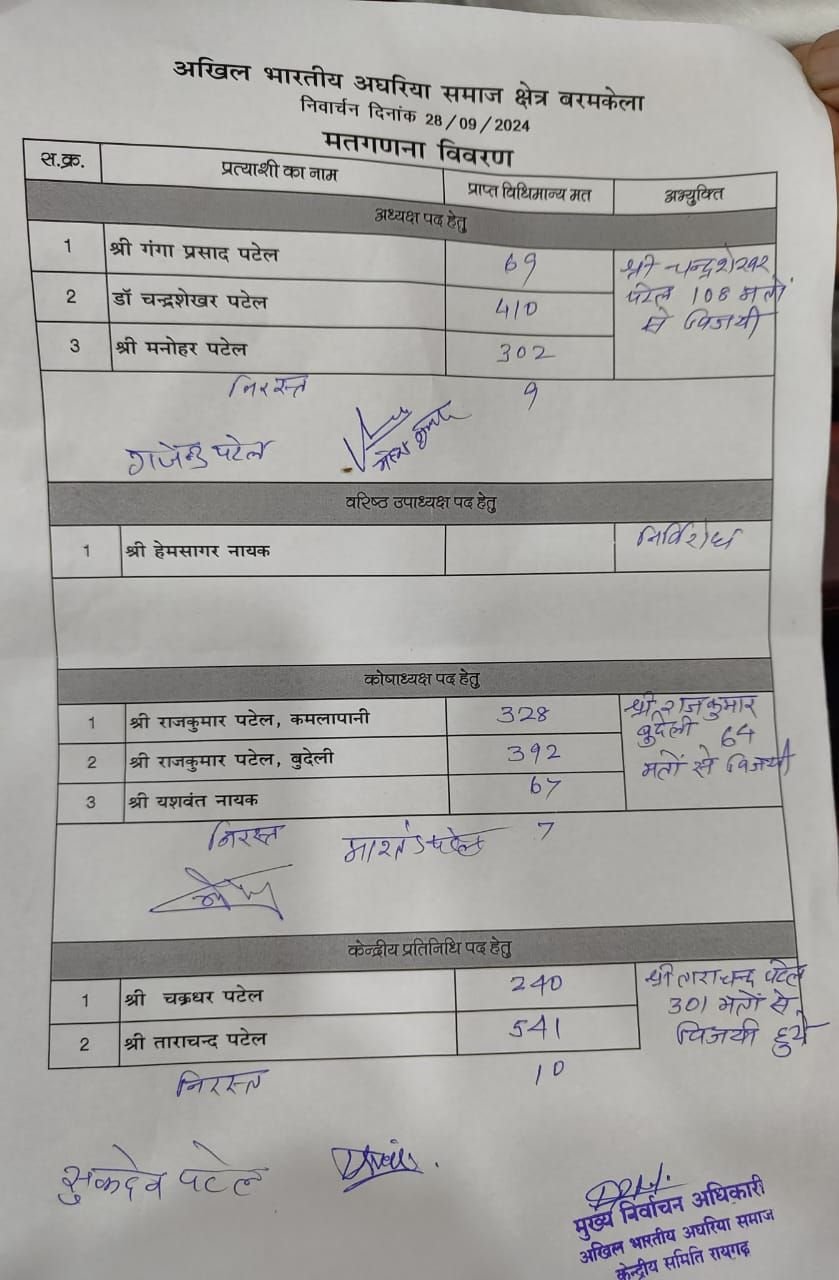 अखिल भारतीय अघरिया समाज क्षेत्र बरमकेला
निर्वाचन दिनांक 28/09/2024
मतगणना विवरण
स.क्र. प्रत्याशी का नाम प्राप्त विधिमान्य मत अभ्युक्ति
अध्यक्ष पद हेतु
1 श्री गंगा प्रसाद पटेल 69 श्री चन्द्रशेखर
2 डॉ चन्द्रशेखर पटेल 410 पटेल 108 मतों
से विजयी
3 श्री मनोहर पटेल 302
निरस्त 9
गजेन्द्र पटेल
वरिष्ठ उपाध्यक्ष पद हेतु
1 श्री हेमसागर नायक निर्विरोध
कोषाध्यक्ष पद हेतु
1 श्री राजकुमार पटेल, कमलापानी 328 श्री राजकुमार
2 श्री राजकुमार पटेल, बुदेली 392 बुदेली 64
मतों से विजयी
3 श्री यशवंत नायक 67
निरस्त पटेल 7
केन्द्रीय प्रतिनिधि पद हेतु
1 श्री चक्रधर पटेल 240 श्री ताराचन्द पटेल
301 मतों से
2 श्री ताराचन्द पटेल 541 विजयी हुये
निरस्त 10
सुकदेव पटेल
मुख्य निर्वाचन अधिकारी
अखिल भारतीय अघरिया समाज
केन्द्रीय समिति रायगढ़